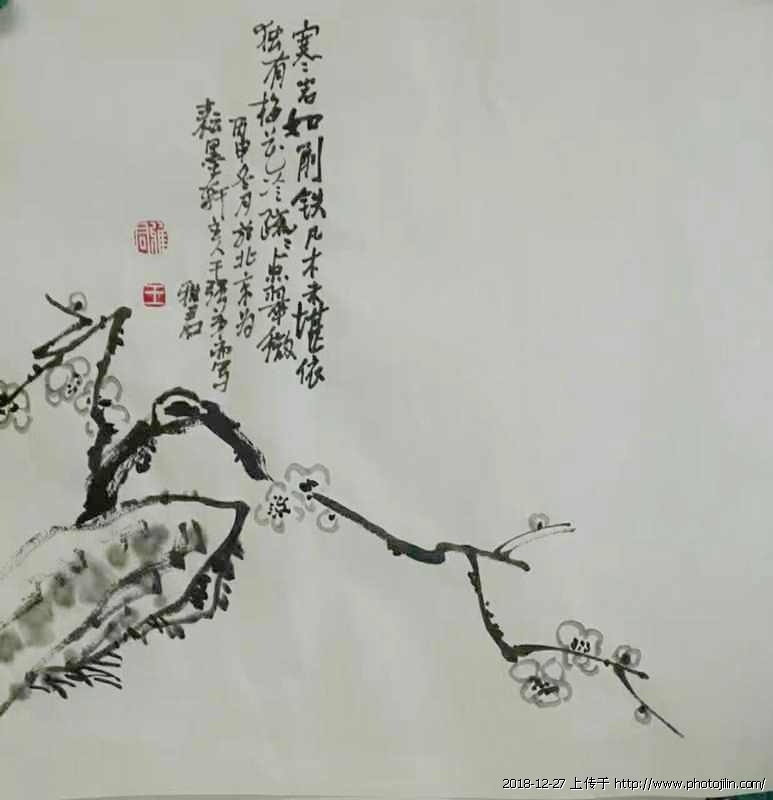 寒岩如削铁凡木未堪依
独有梅花冷疏疏点翠微
丙申冬月於北京为
墨轩主人王强写
王
2018-12-27 上传于 http://www.photojilin.com/